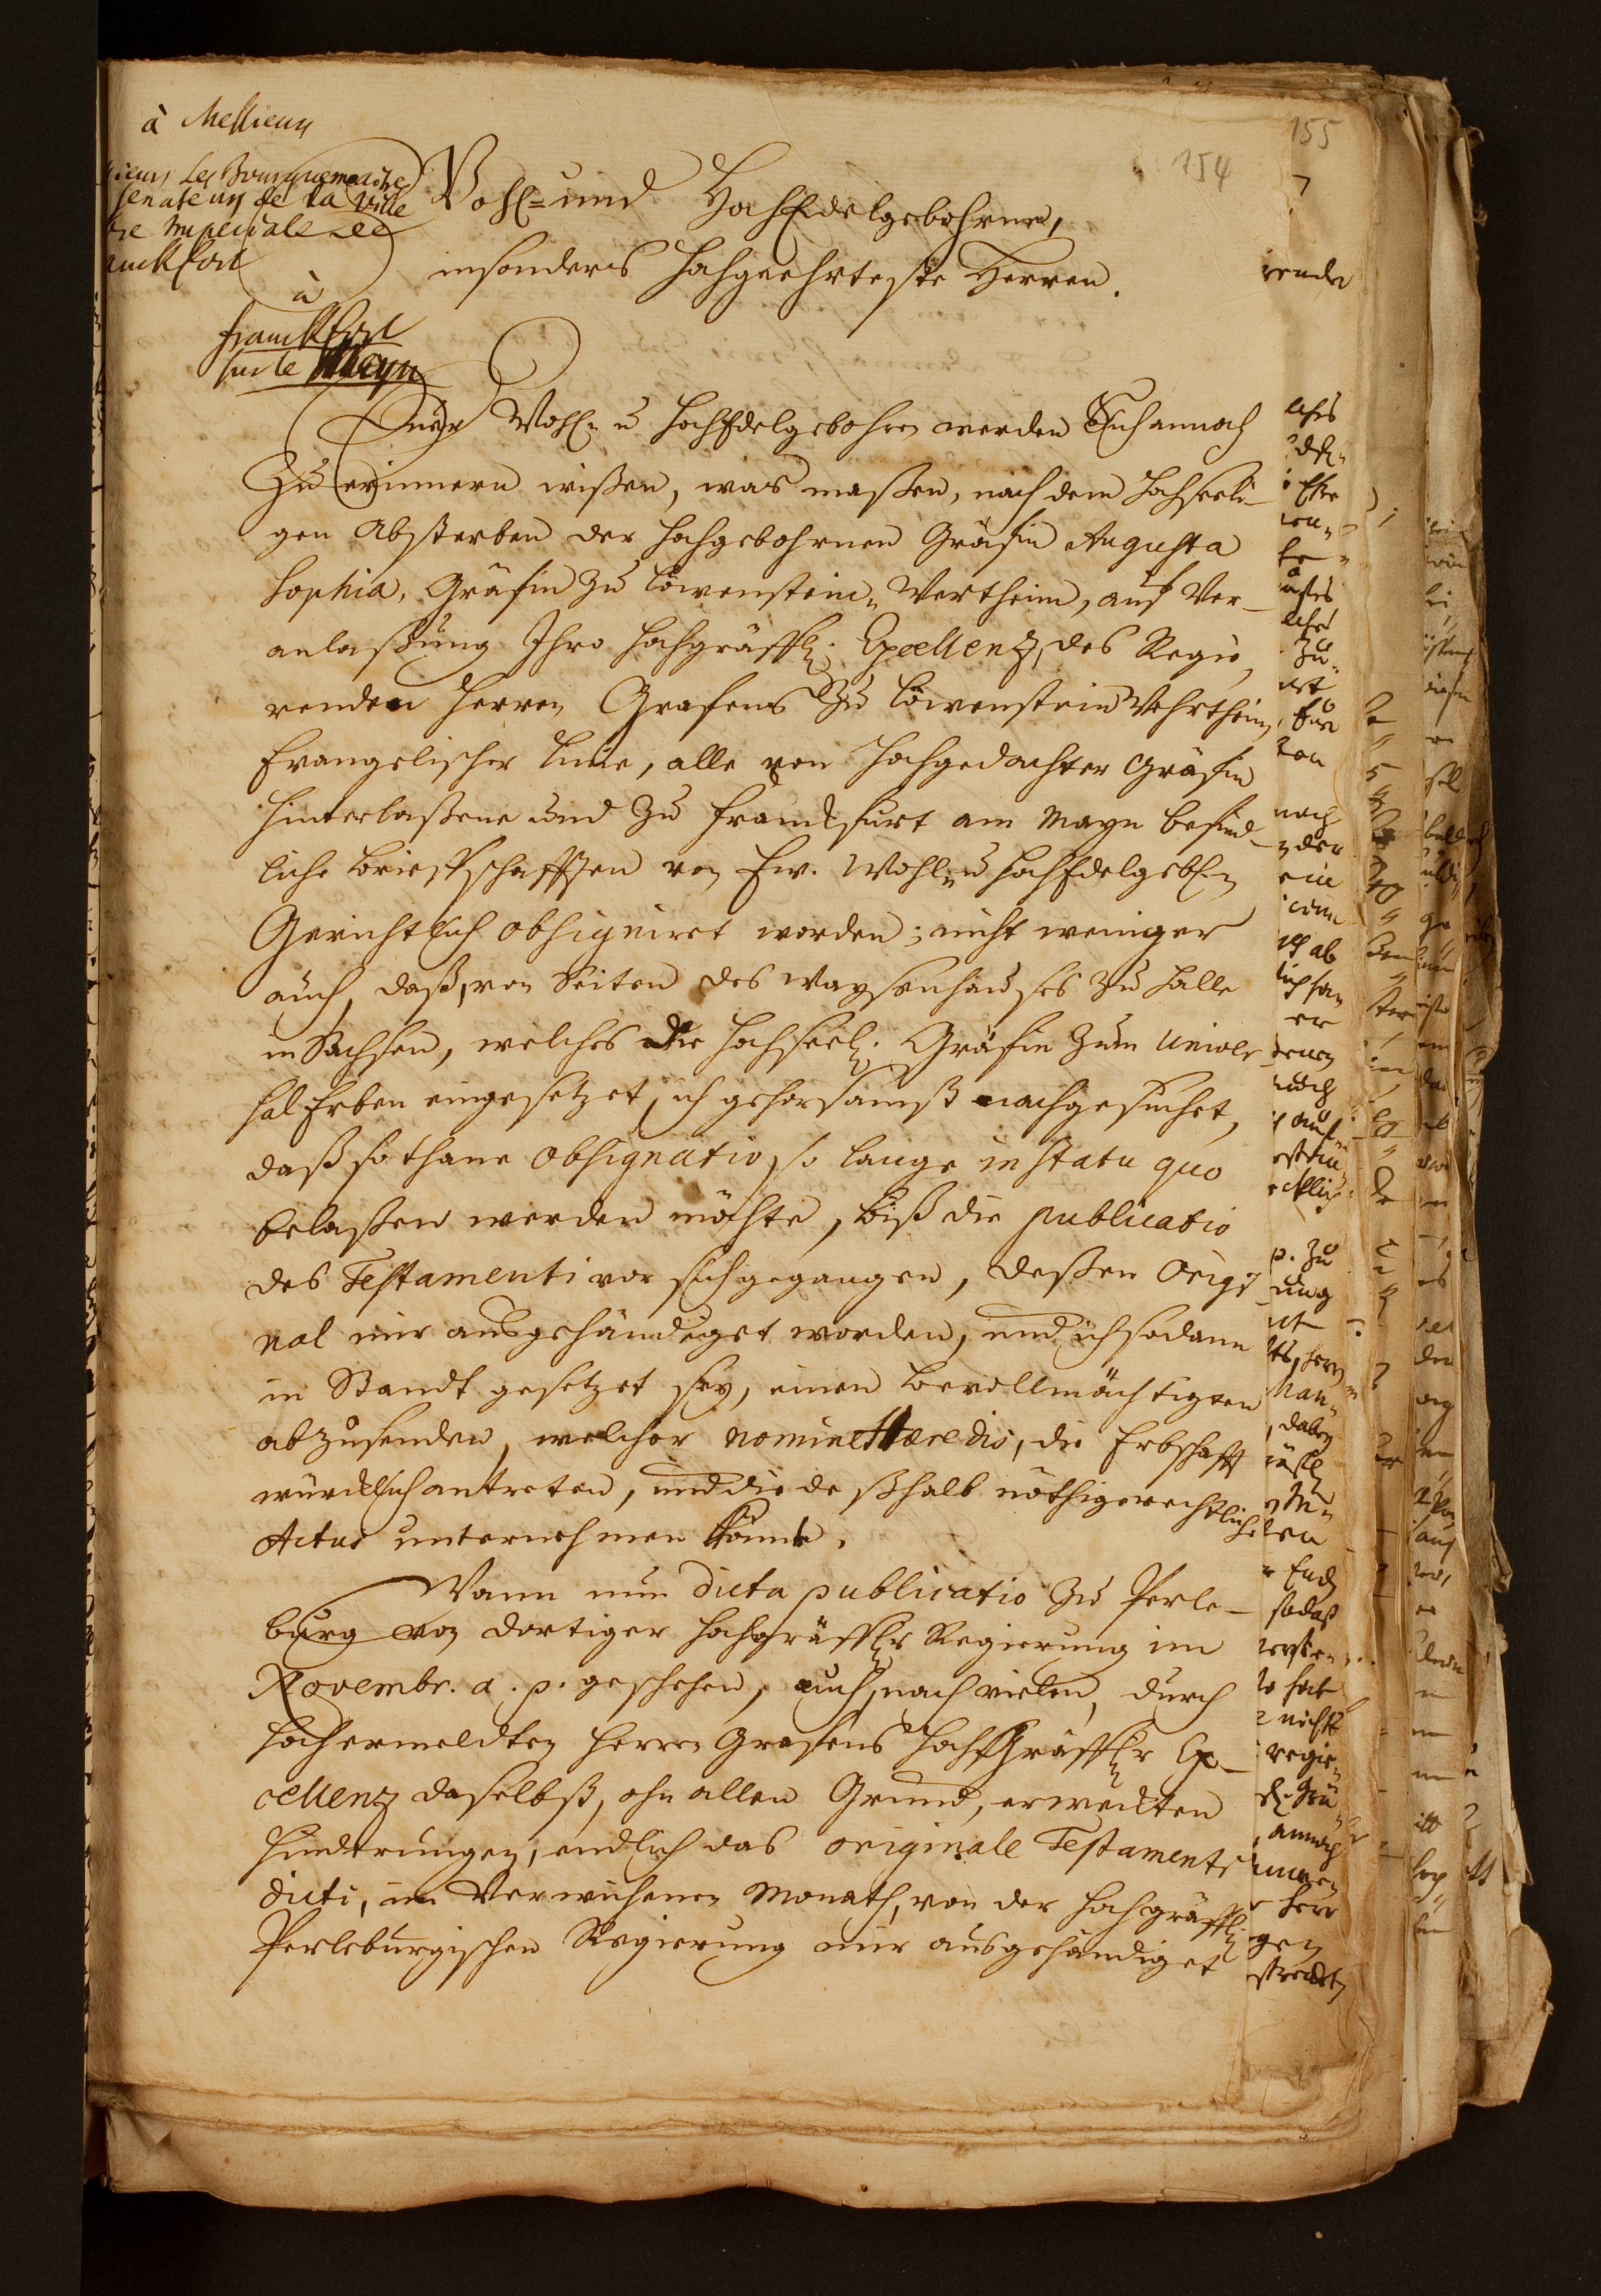 à Messieurs
Les Bourguemaitre
Senateurs de la Ville
Imperiale de
anckfort
à
franckfort
sur le Mayn
154
155
Wohl= und HochEdelgebohrne,
insonders Hochgeehrteste Herren.
Euer Wohl- u HochEdelgebohren werden Sich annoch
Zu erinnern wißen, was maßen, nach dem Hochseeli-
gen Absterben der Hochgebohrnen Gräfin Augusta
Sophia, Gräfin zu Löwenstein-Wertheim, auf Ver-
anlaßung Ihro Hochgräffl. Excellenz, des Regie-
renden Herren Grafens Zu Löwenstein Wehrtheim,
Evangelischer Linie, alle von Hochgedachter Gräfin
hinterlaßene und zu Franckfurt am Mayn befind-
liche Brieffschafften von Ew. Wohl- u HochEdelgeb.
Gerichtlich obsigniret worden; nicht weniger
auch, daß, von Seiten des Waysenhauses zu Halle
in Sachsen, welches die Hochseel. Gräfin zum Univer
sal Erben eingesetzet, ich gehorsamst nachgesuchet,
daß sothane Obsignatio, so lange in Statu quo
belaßen werden möchte, biß die publicatio
des Testamenti vor sich gegangen, deßen Origi-
nal mir ausgehändiget worden, und ich sodann
in Standt gesetzet sey, einen Bevollmächtigten
abzusenden, welcher nomine Hæredis, die Erbschafft
würcklich antreten, und die deßhalb nöthige rechtliche
Actus unternehmen könnte.
Wann nun dicta publicatio Zu Perle-
burg von dortiger Hochgräffl Regierung im
Novembr. a. p. geschehen, auch, nach vielen, durch
Hochermeldten Herren Grafens HochGräffl Ex-
cellenz daselbst, ohn allen Grund, erweckten
Hinderungen, endlich das originale Testamenti
dicti, im Verwichenen Monath, von der Hochgräffl.
Perleburgischen Regierung mir ausgehändiget